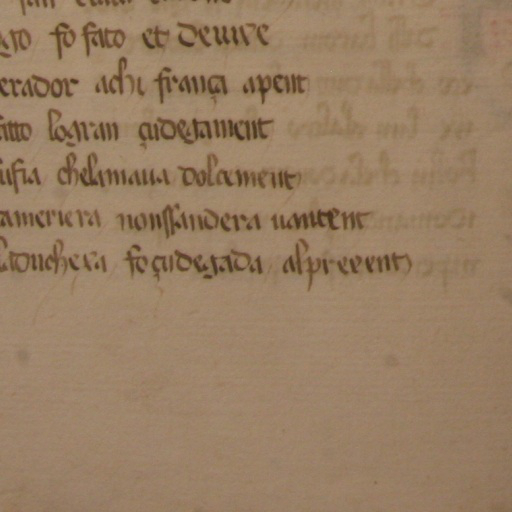 fo fato et deuire
erador achi frança apent
fatto logran çudegament
usia chelamaua dolcement
cameriera nonssandera uantent
laduchera fo çudegada alpreeent